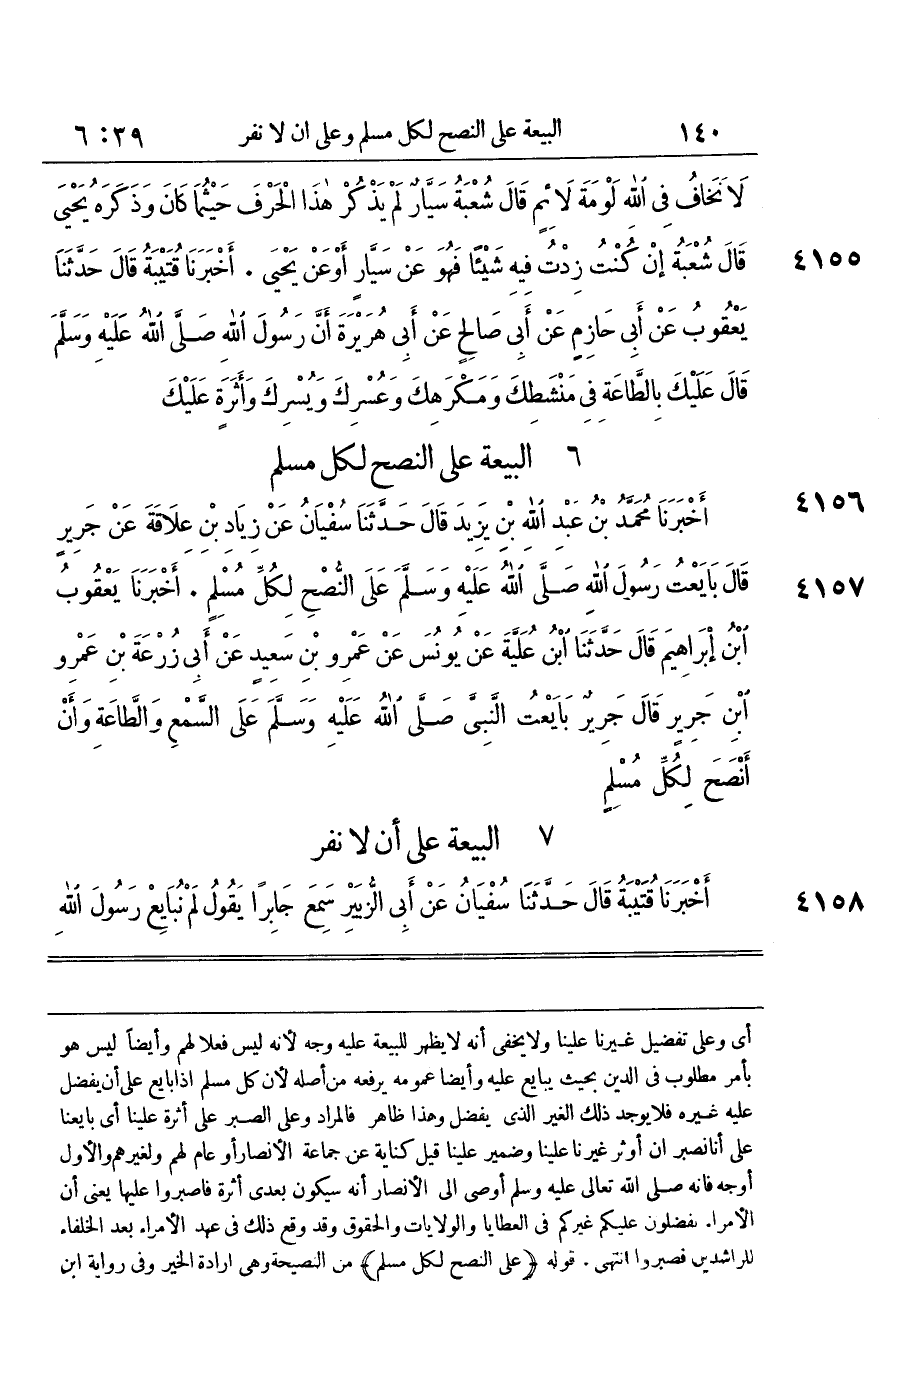 ١٤٠ البيعة على النصح لكل مسلم وعلى ان لا نفر ٣٩:٦
لَا نَخَافُ فِى ٱللهِ لَوْمَةَ لَائِمٍ قَالَ شُعْبَةُ سَيَّارٌ لَمْ يَذْكُرْ هٰذَا الْحَرْفَ حَيْثُمَا كَانَ وَذَكَرَهُ يَحْيَى
٤١٥٥ قَالَ شُعْبَةُ إِنْ كُنْتُ زِدْتُ فِيهِ شَيْئًا فَهُوَ عَنْ سَيَّارٍ أَوْ عَنْ يَحْيَى . أَخْبَرَنَا قُتَيْبَةُ قَالَ حَدَّثَنَا
يَعْقُوبُ عَنْ أَبِى حَازِمٍ عَنْ أَبِى صَالِحٍ عَنْ أَبِى هُرَيْرَةَ أَنَّ رَسُولَ ٱللهِ صَلَّى ٱللهُ عَلَيْهِ وَسَلَّمَ
قَالَ عَلَيْكَ بِالطَّاعَةِ فِى مَنْشَطِكَ وَمَكْرَهِكَ وَعُسْرِكَ وَيُسْرِكَ وَأَثَرَةٍ عَلَيْكَ
٦ البيعة على النصح لكل مسلم
٤١٥٦ أَخْبَرَنَا مُحَمَّدُ بْنُ عَبْدِ ٱللهِ بْنِ يَزِيدَ قَالَ حَدَّثَنَا سُفْيَانُ عَنْ زِيَادِ بْنِ عِلَاقَةَ عَنْ جَرِيرٍ
٤١٥٧ قَالَ بَايَعْتُ رَسُولَ ٱللهِ صَلَّى ٱللهُ عَلَيْهِ وَسَلَّمَ عَلَى النُّصْحِ لِكُلِّ مُسْلِمٍ . أَخْبَرَنَا يَعْقُوبُ
ٱبْنُ إِبْرَاهِيمَ قَالَ حَدَّثَنَا ٱبْنُ عُلَيَّةَ عَنْ يُونُسَ عَنْ عَمْرِو بْنِ سَعِيدٍ عَنْ أَبِى زُرْعَةَ بْنِ عَمْرِو
ٱبْنِ جَرِيرٍ قَالَ جَرِيرٌ بَايَعْتُ النَّبِىَّ صَلَّى ٱللهُ عَلَيْهِ وَسَلَّمَ عَلَى السَّمْعِ وَالطَّاعَةِ وَأَنْ
أَنْصَحَ لِكُلِّ مُسْلِمٍ
٧ البيعة على أن لا نفر
٤١٥٨ أَخْبَرَنَا قُتَيْبَةُ قَالَ حَدَّثَنَا سُفْيَانُ عَنْ أَبِى الزُّبَيْرِ سَمِعَ جَابِرًا يَقُولُ لَمْ نُبَايِعْ رَسُولَ ٱللهِ
أى وعلى تفضيل غيرنا علينا ولايخفى أنه لا يظهر للبيعة عليه وجه لأنه ليس فعلا لهم وأيضاً ليس هو
بأمر مطلوب فى الدين بحيث يبايع عليه وأيضا عمومه يرفعه من أصله لأن كل مسلم اذا بايع على أن يفضل
عليه غيره فلا يوجد ذلك الغير الذى يفضل وهذا ظاهر فالمراد وعلى الصبر على أثرة علينا أى بايعنا
على أنا نصبر ان أوثر غيرنا علينا وضمير علينا قيل كناية عن جماعة الأنصار أو عام لهم ولغيرهم والأول
أوجه فانه صلى الله تعالى عليه وسلم أوصى الى الأنصار أنه سيكون بعدى أثرة فاصبروا عليها يعنى أن
الأمراء يفضلون عليكم غيركم فى العطايا والولايات والحقوق وقد وقع ذلك فى عهد الأمراء بعد الخلفاء
للراشدين فصبروا انتهى . قوله ﴿على النصح لكل مسلم﴾ من النصيحة وهى ارادة الخير وفى رواية ابن